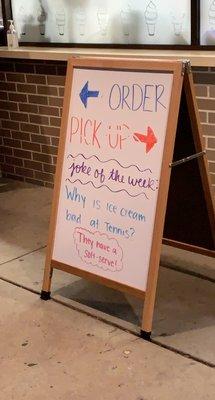 ORDER
PICK UP
joke of the week:
Why is ice cream
bad at Tennis?
They have a
soft-serve!